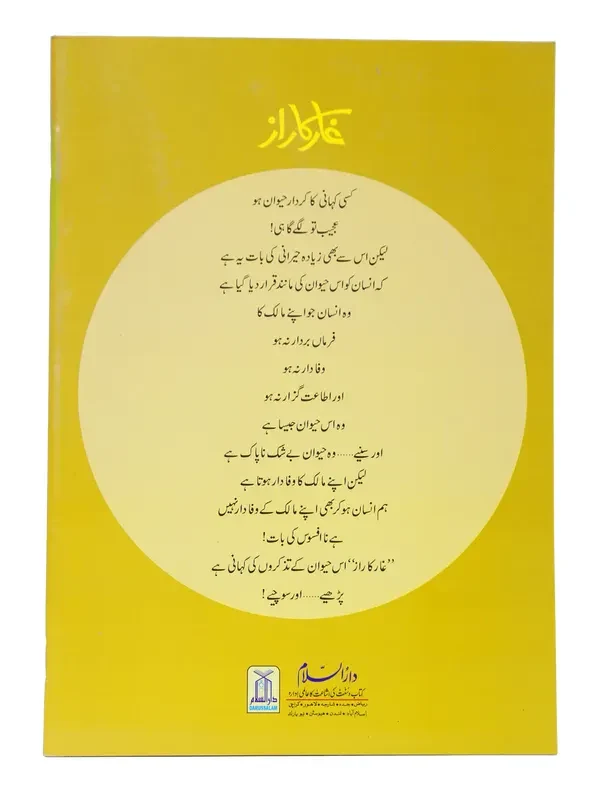 غار کا راز
کسی کہانی کا کردار حیوان ہو
عجیب تو لگے گا ہی!
لیکن اس سے بھی زیادہ حیرانی کی بات یہ ہے
کہ انسان کو اس حیوان کی مانند قرار دیا گیا ہے
وہ انسان جو اپنے مالک کا
فرماں بردار نہ ہو
وفادار نہ ہو
اور اطاعت گزار نہ ہو
وہ اس حیوان جیسا ہے
اور سنیے......وہ حیوان بے شک ناپاک ہے
لیکن اپنے مالک کا وفادار ہوتا ہے
ہم انسان ہو کر بھی اپنے مالک کے وفادار نہیں
ہے نا افسوس کی بات!
”غار کا راز“ اس حیوان کے تذکروں کی کہانی ہے
پڑھیے......اور سوچیے!
دارالسلام
کتاب و سنت کی اشاعت کا عالمی ادارہ
ریاض • جدہ • شارجہ • لاہور • کراچی
اسلام آباد • لندن • ہیوسٹن • نیو یارک
دارالسلام
DARUSSALAM